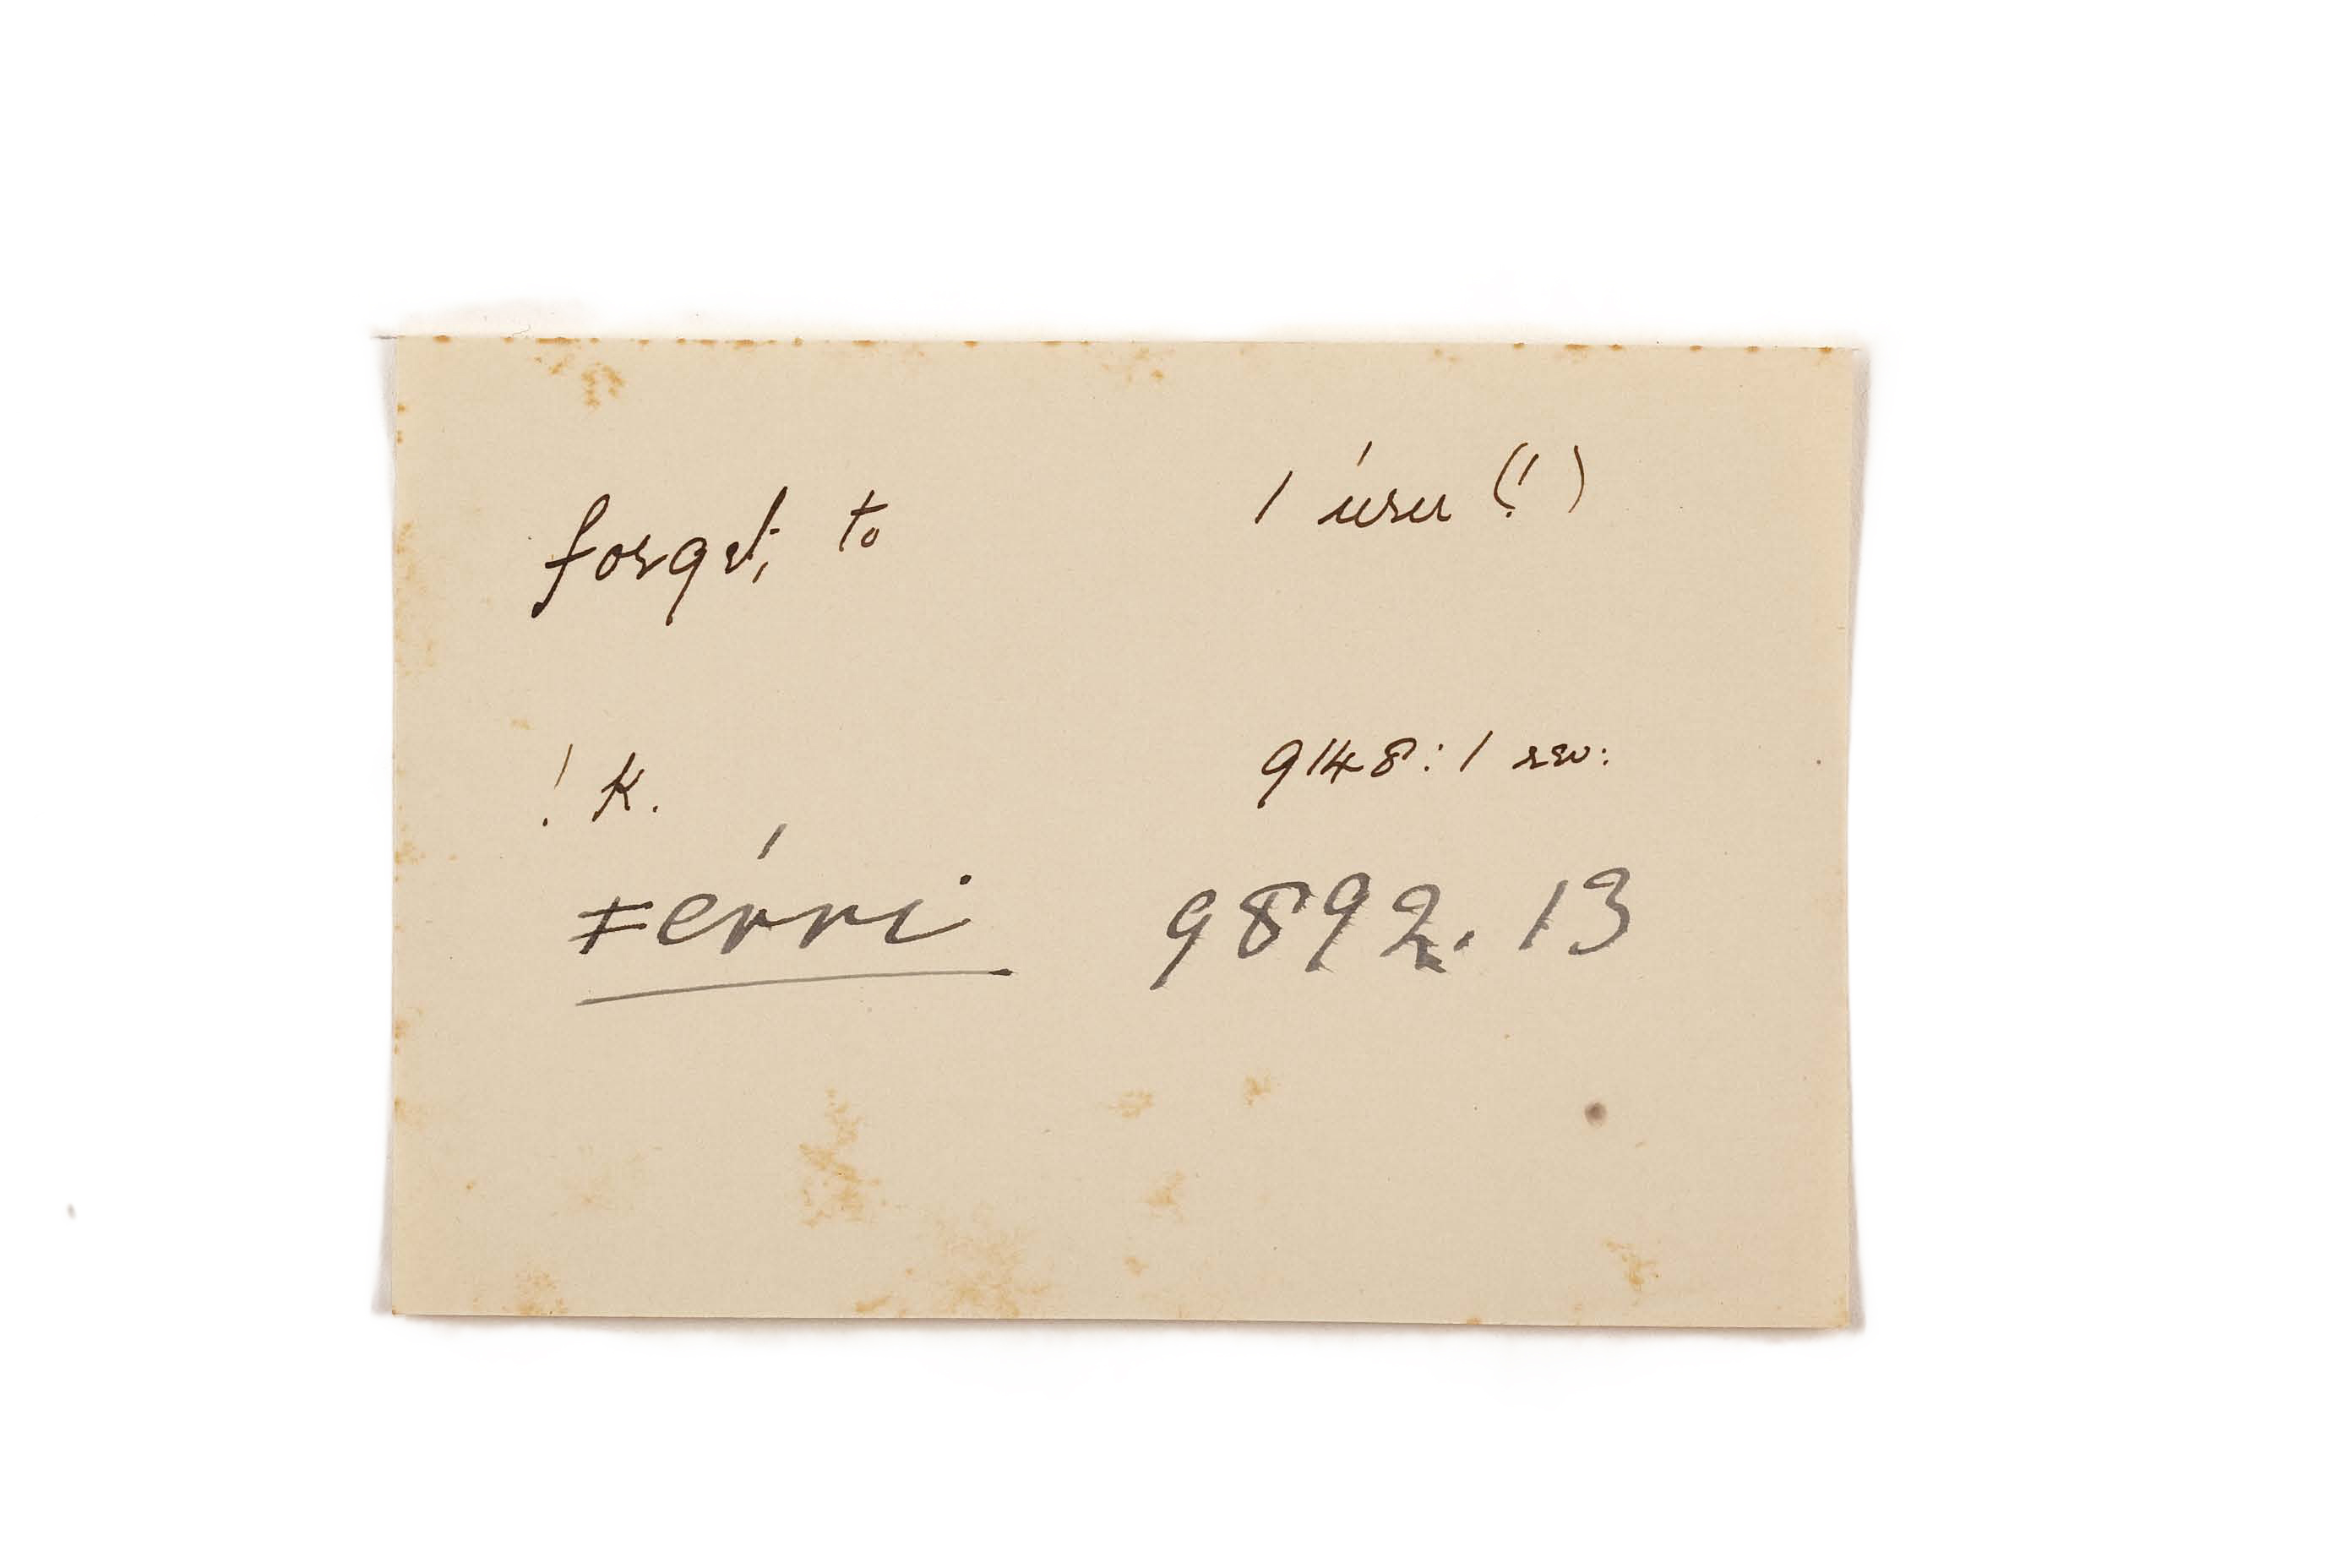 forget, to 1 úsu (!)
! K. 9148:1 rev:
Férri 9892.13